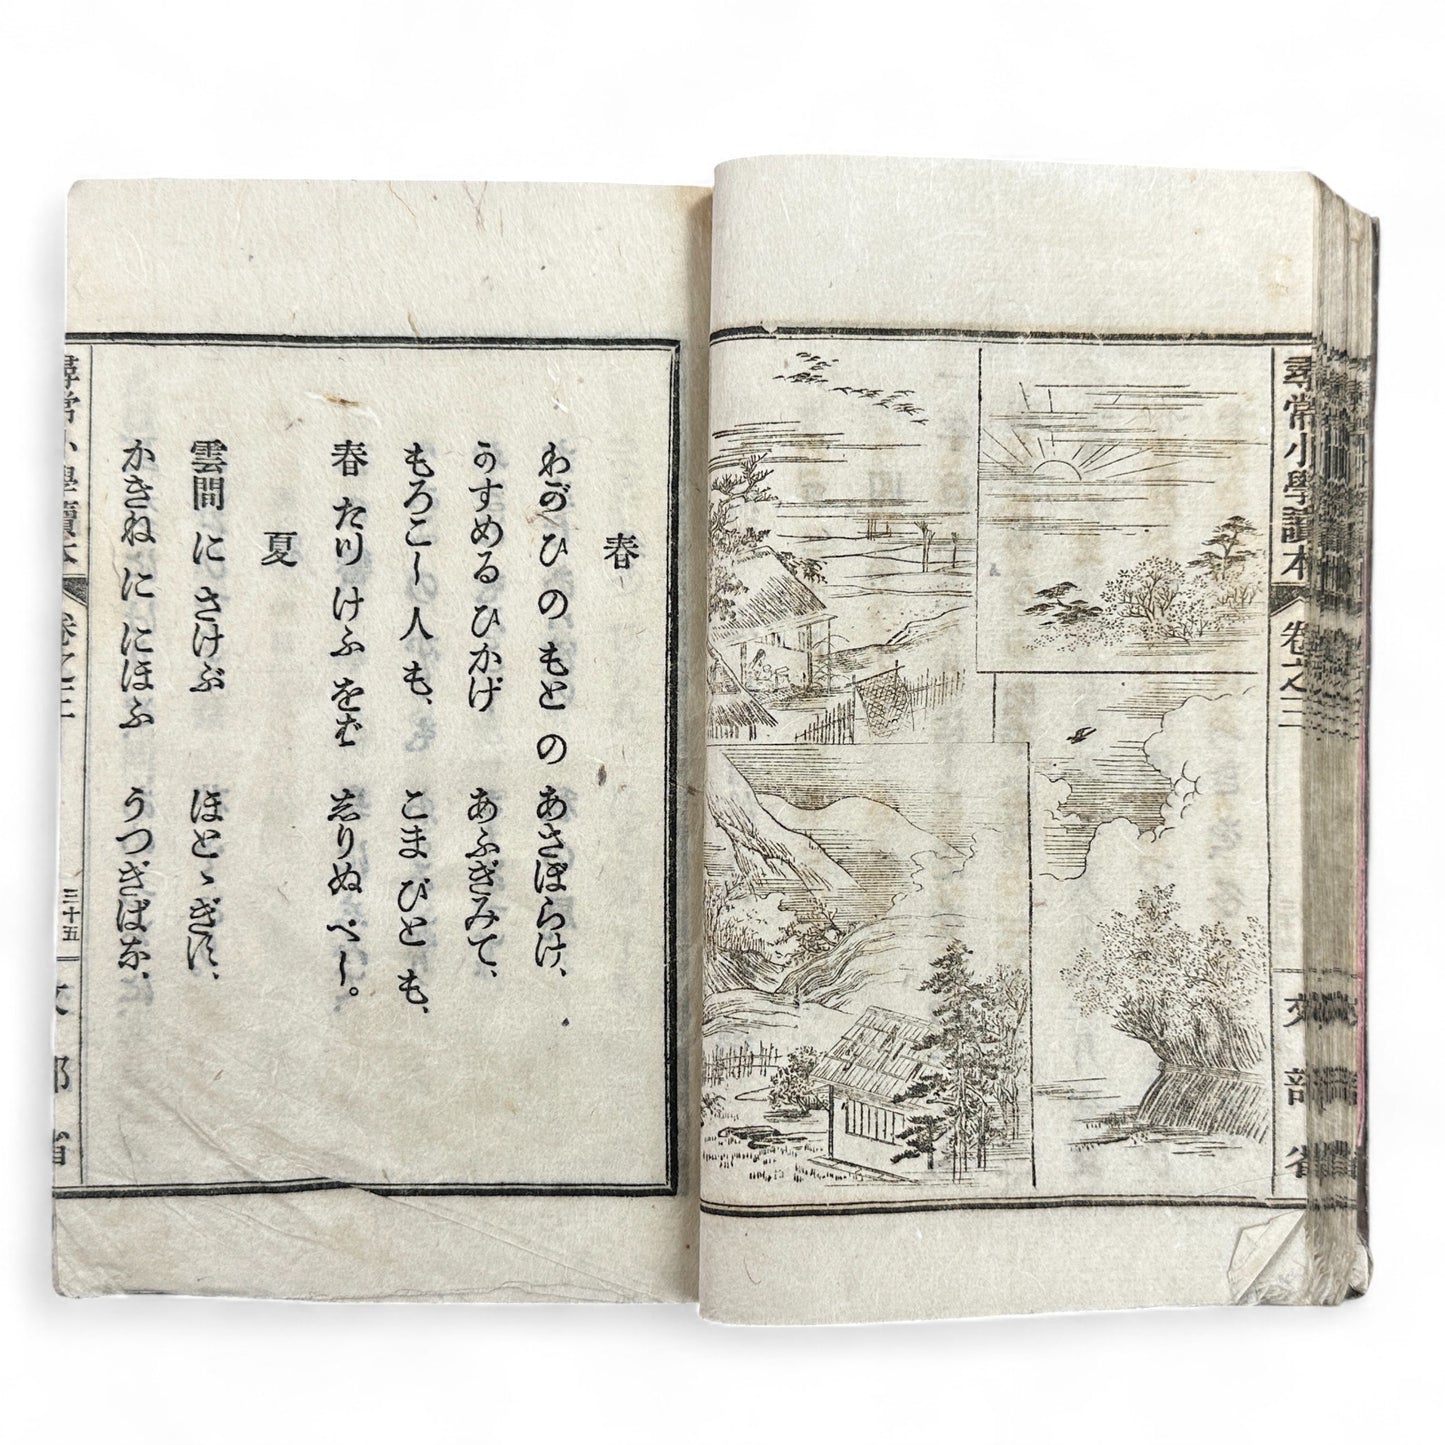 尋常小學讀本
卷之
文部省
春
わがひのもとの あさぼらけ、
かすめるひかげ あふぎみて、
もろこし人も、 こまびとも、
春たつけふをば しりぬべし。
夏
雲間にさけぶ ほとゝぎす、
かきねににほふ うつぎばな、
尋常小學讀本
卷之
三十五
文部省